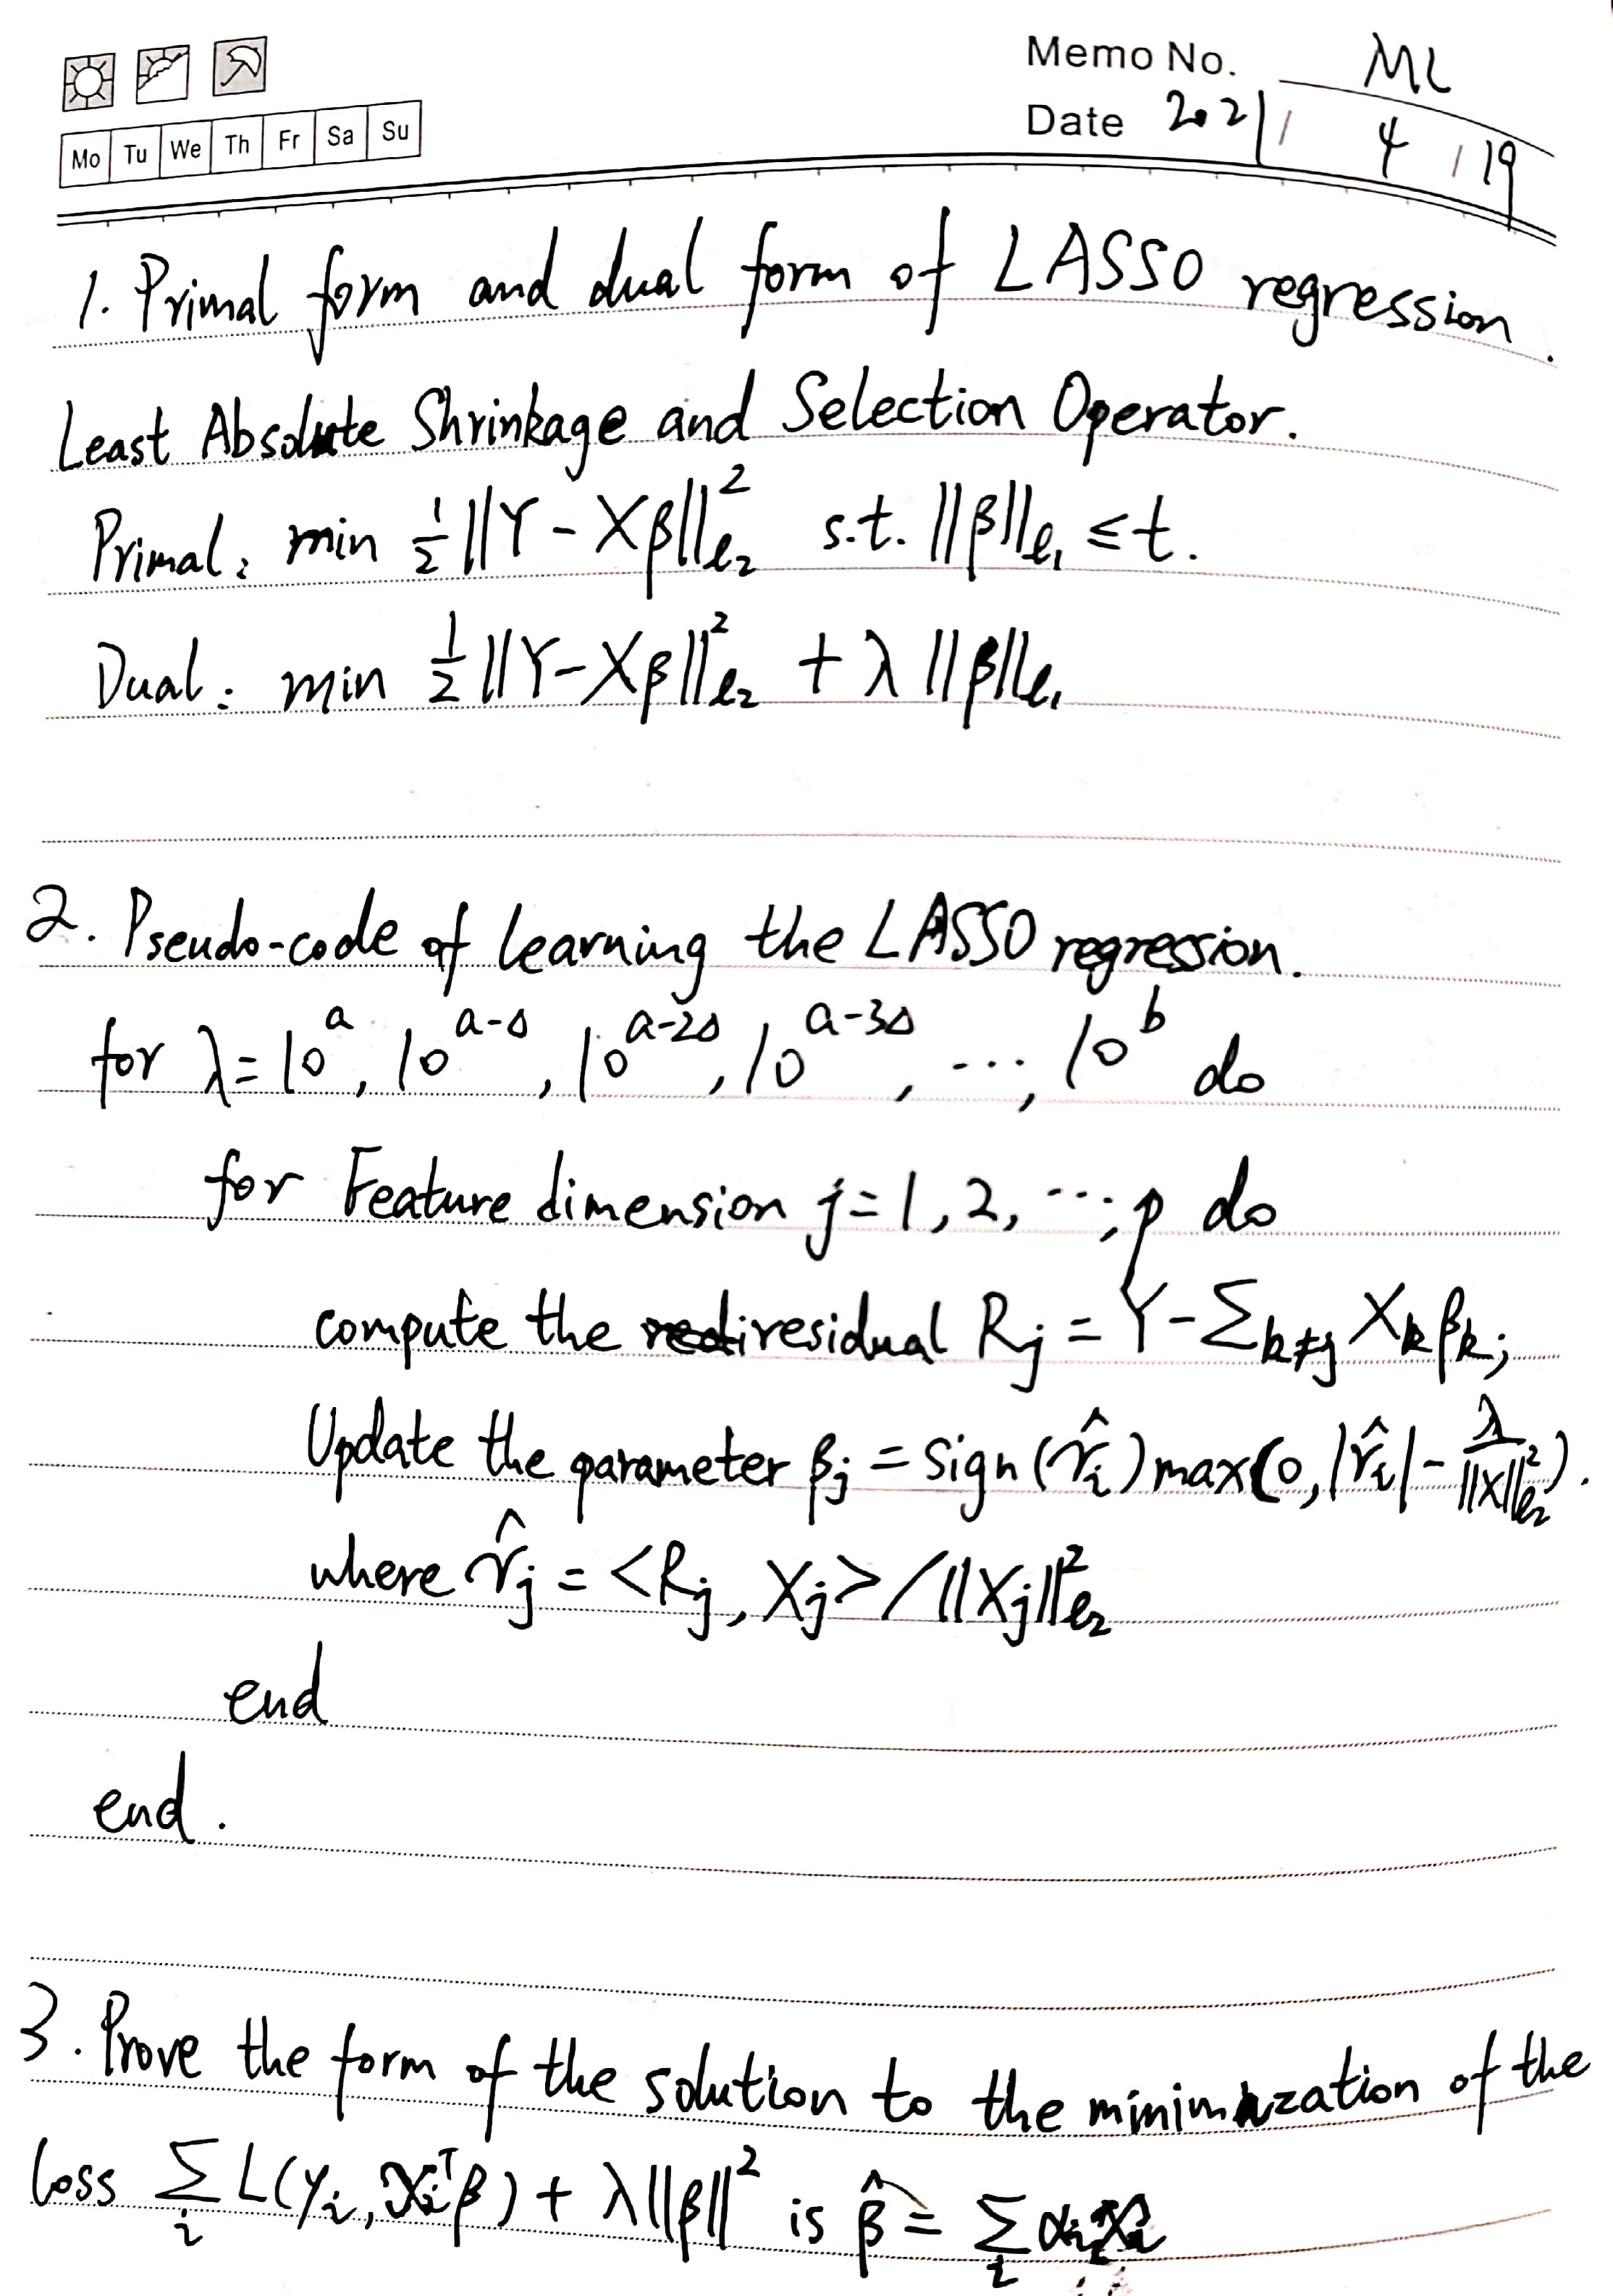 Memo No. ML
Mo Tu We Th Fr Sa Su
Date 2021 / 4 / 19
1. Primal form and dual form of LASSO regression.
Least Absolute Shrinkage and Selection Operator.
Primal: min ½||Y - Xβ||²_ℓ₂ s.t. ||β||_ℓ₁ ≤ t.
Dual: min ½||Y-Xβ||²_ℓ₂ + λ||β||_ℓ₁
2. Pseudo-code of learning the LASSO regression.
for λ = 10^a, 10^(a-Δ), 10^(a-2Δ), 10^(a-3Δ), ..., 10^b do
for Feature dimension j = 1, 2, ..., p do
compute the residual R_j = Y - Σ_{k≠j} X_k β_k;
Update the parameter β_j = sign(r̂_i) max(0, |r̂_i| - λ/||X||²_ℓ₂).
where r̂_j = <R_j, X_j> / ||X_j||²_ℓ₂
end
end.
3. Prove the form of the solution to the minimization of the
loss Σ_i L(y_i, x_i^T β) + λ||β||² is β̂ = Σ_i α_i x_i